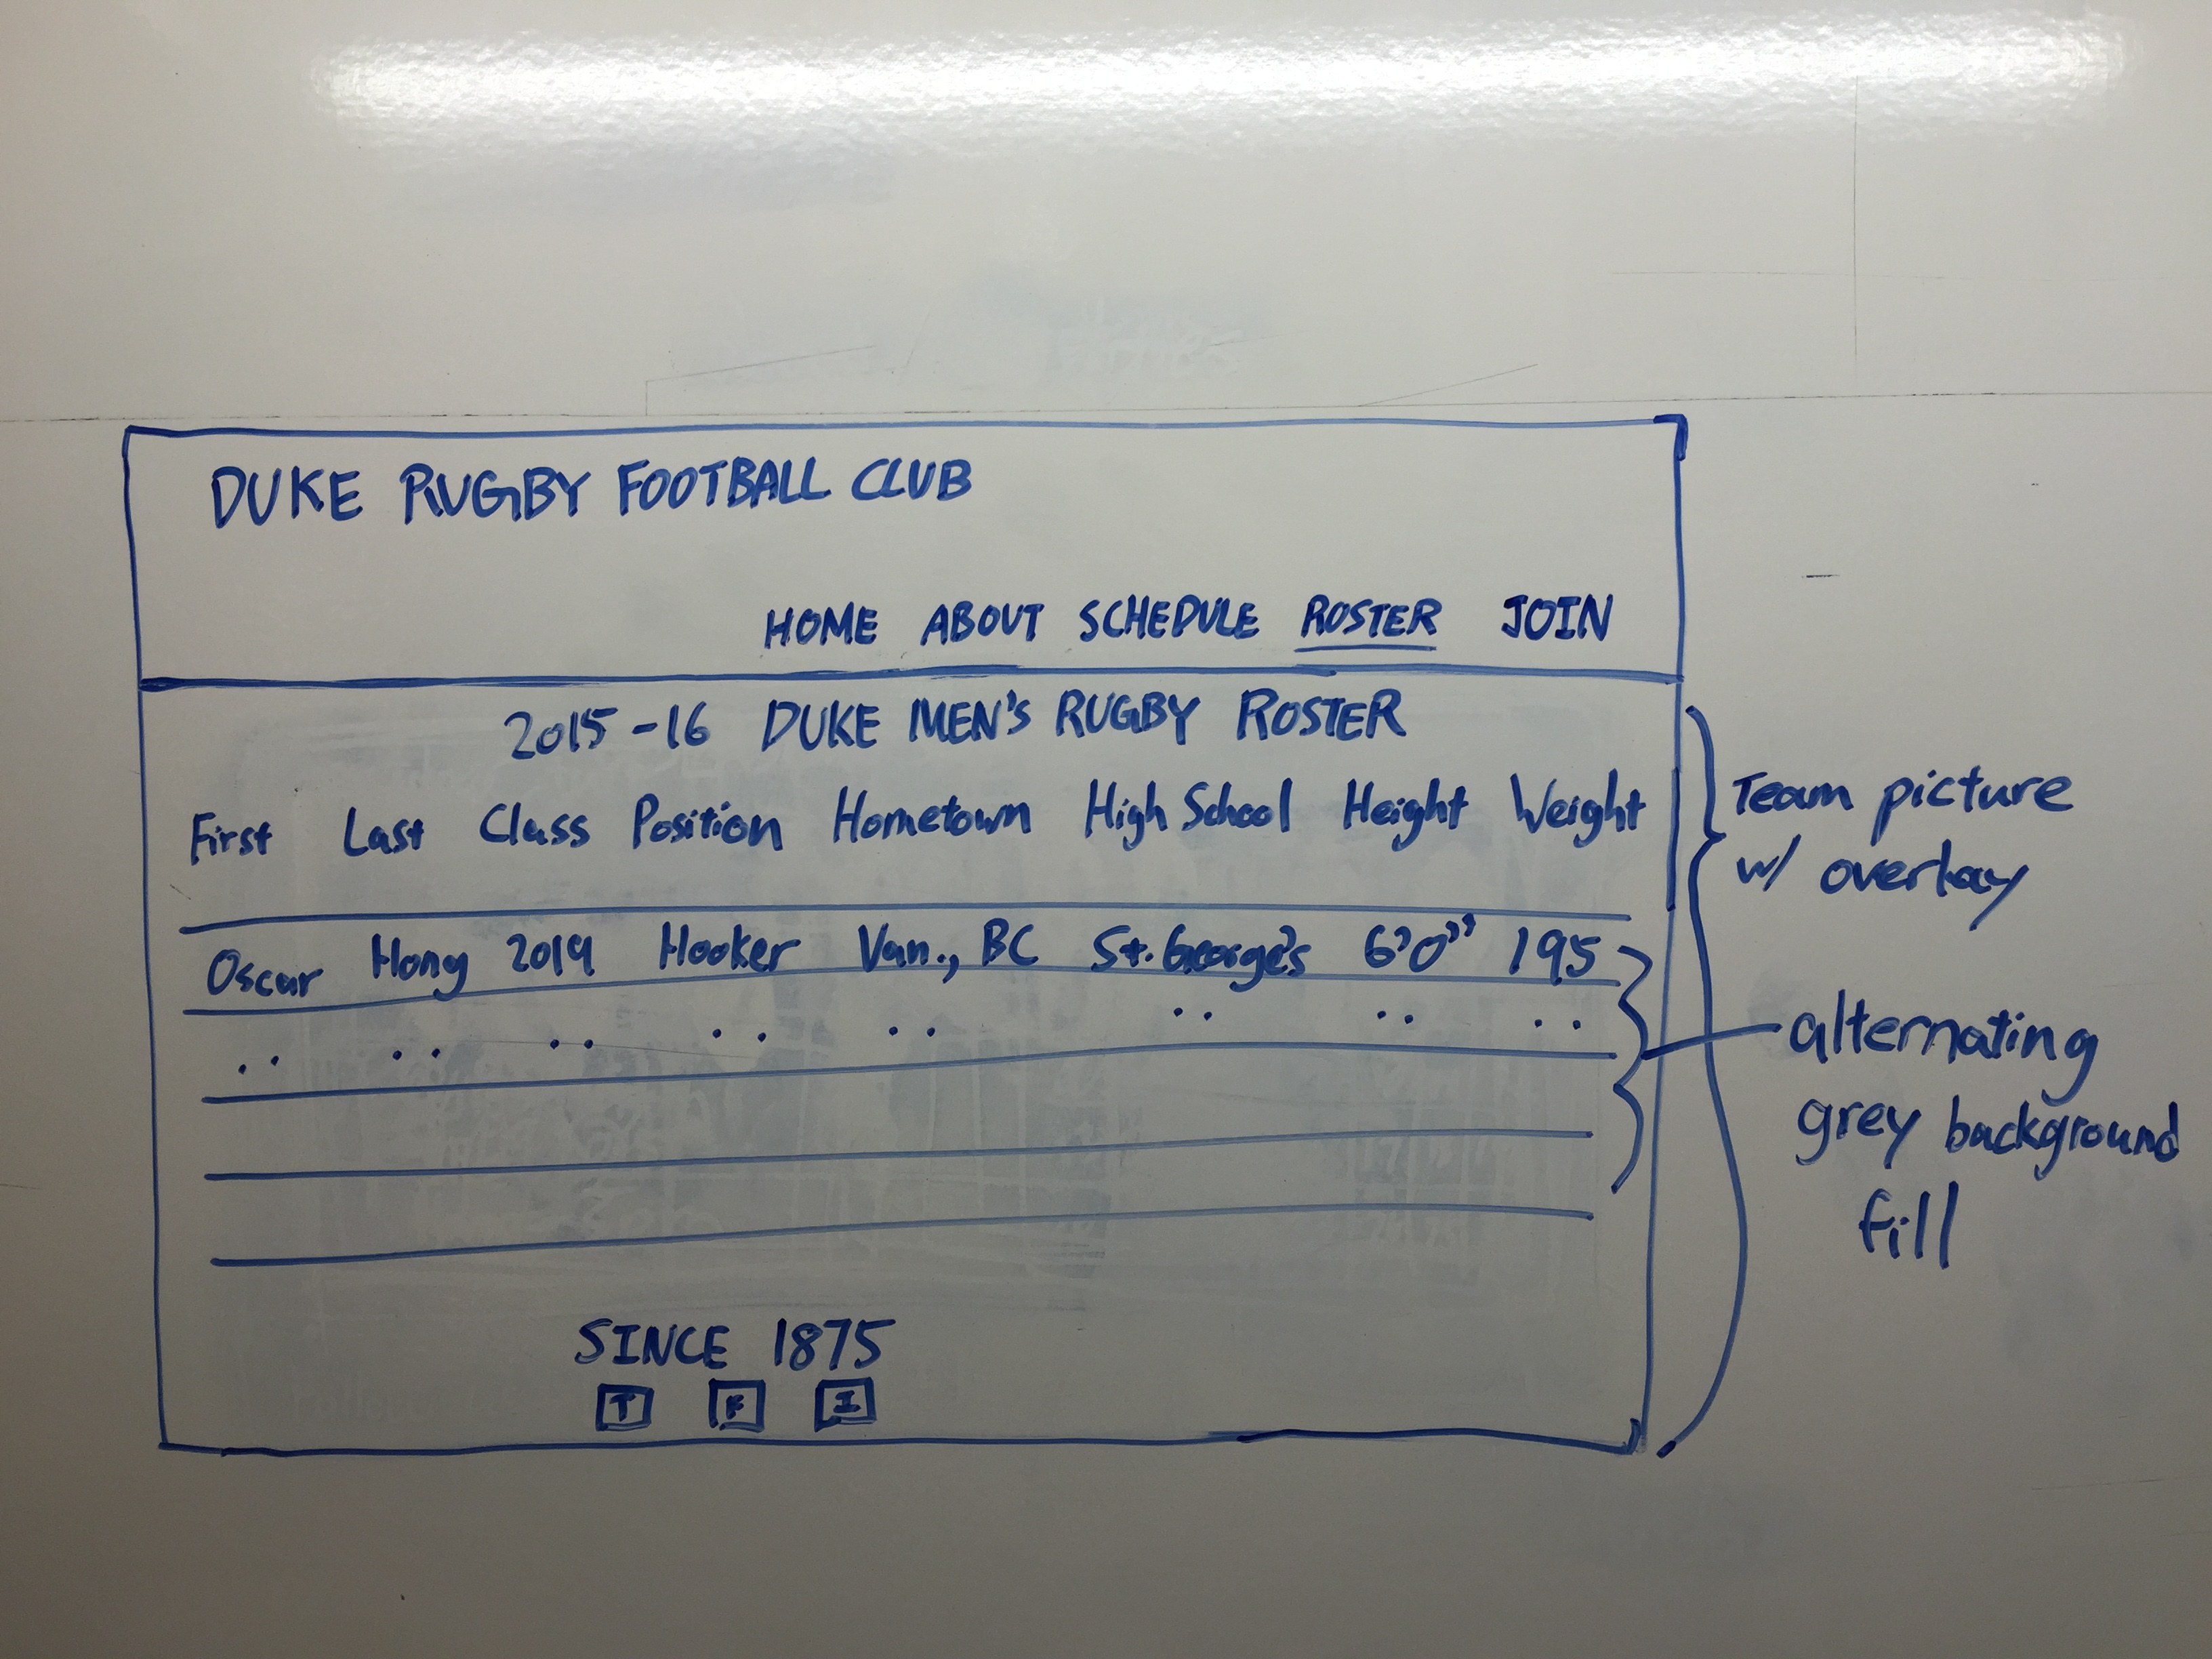 DUKE RUGBY FOOTBALL CLUB
HOME ABOUT SCHEDULE ROSTER JOIN
2015-16 DUKE MEN'S RUGBY ROSTER
First Last Class Position Hometown High School Height Weight
Oscar Hong 2019 Hooker Van., BC St. George's 6'0" 195
SINCE 1875
T F I
Team picture
w/ overlay
alternating
grey background
fill